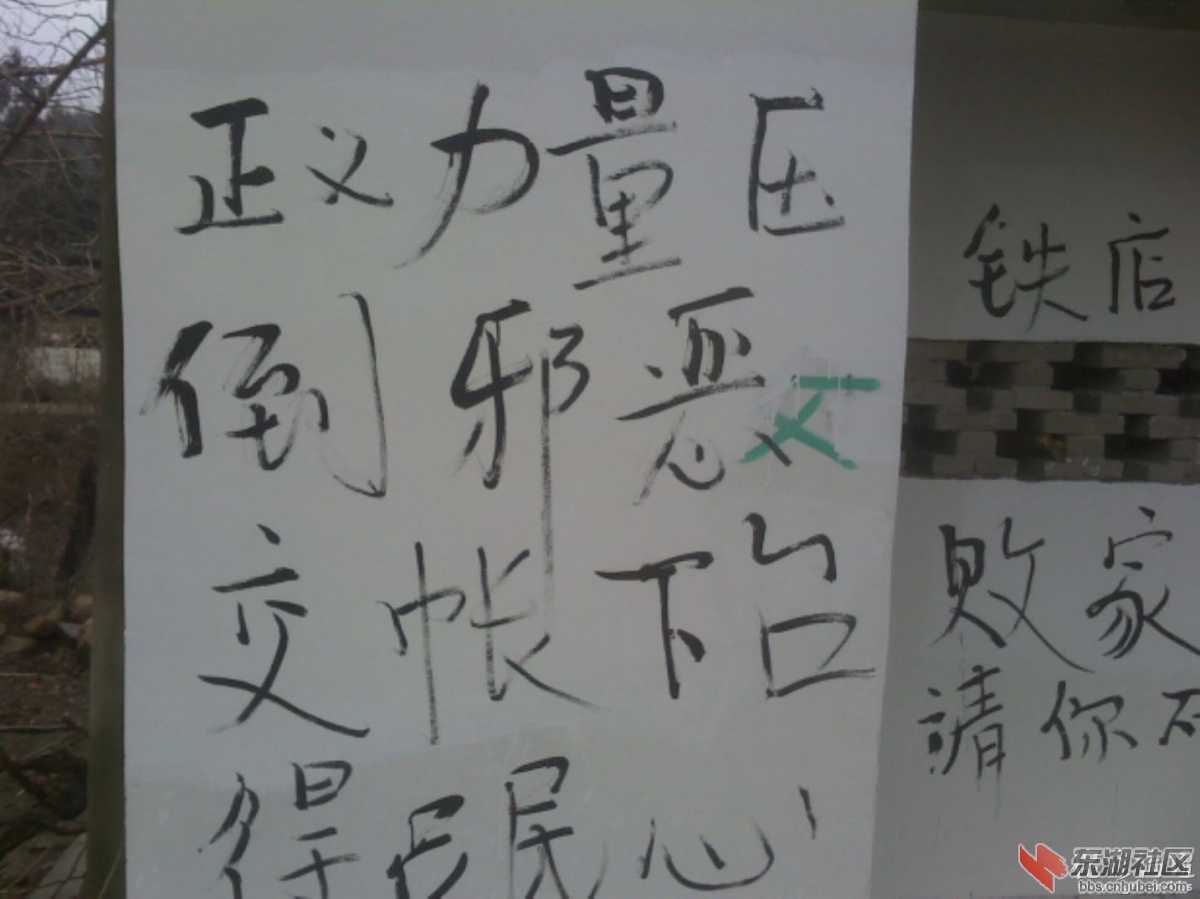 正义力量压
倒邪恶
交帐下台
得民心
铁店
败家
請你
东湖社区
bbs.cnhubei.com